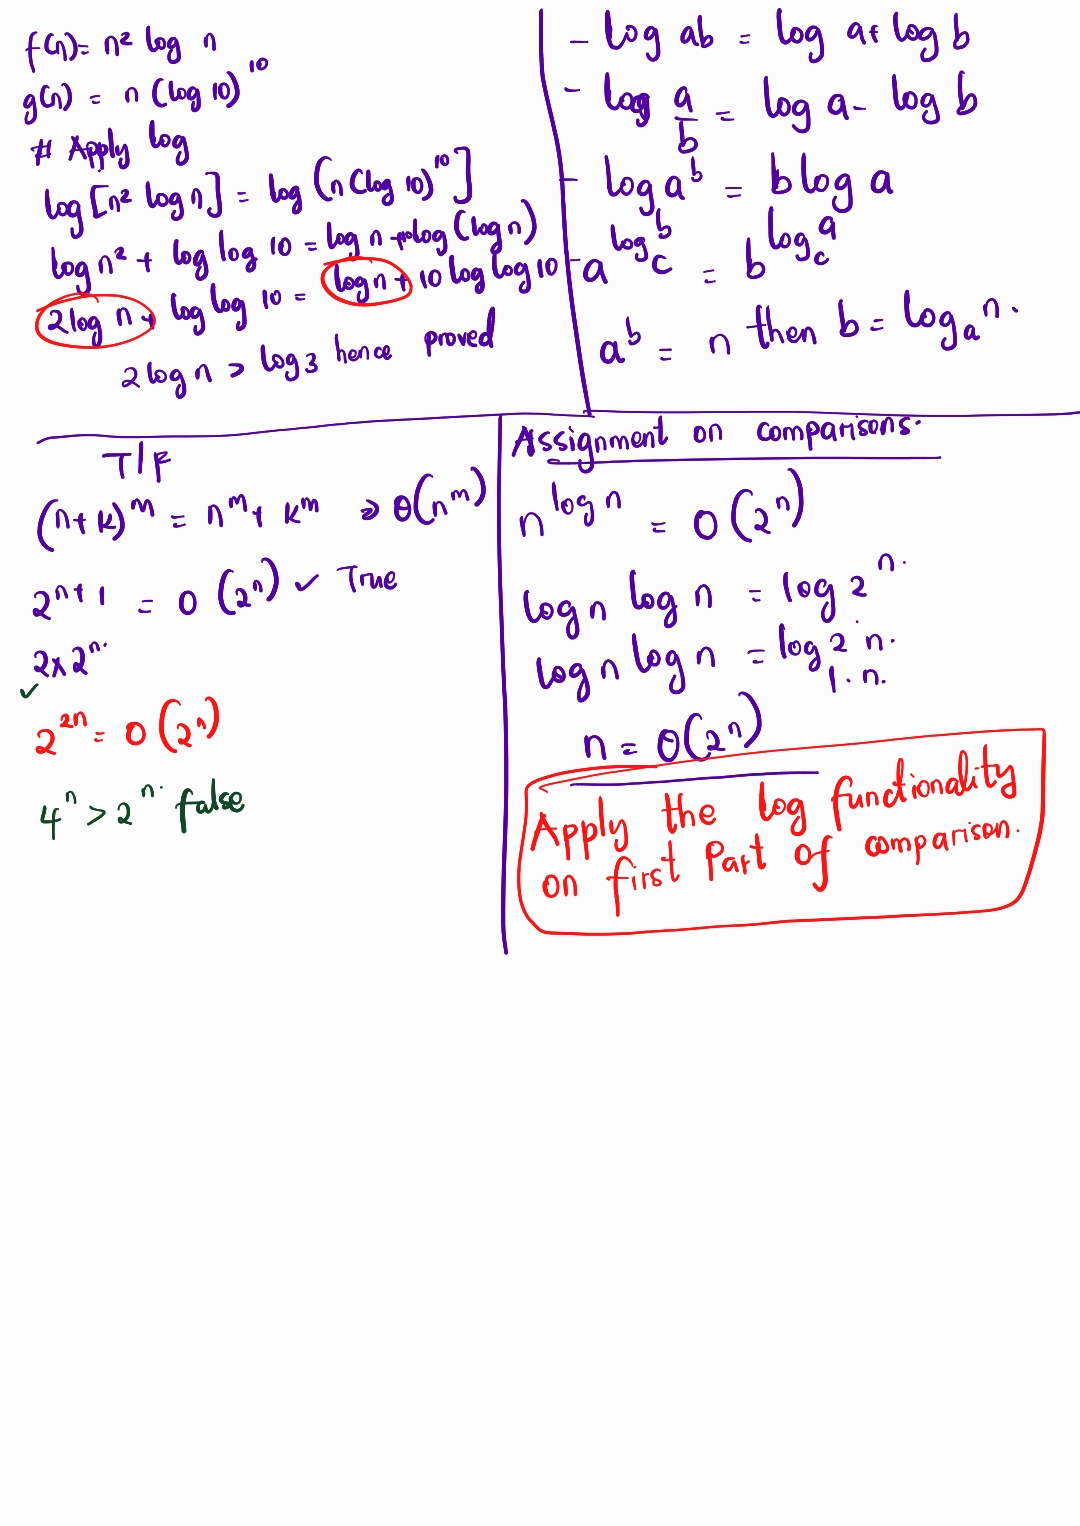 f(n) = n² log n
g(n) = n (log 10)^10
# Apply log
log [n² log n] = log (n (log 10)^10]
log n² + log log 10 = log n + log (log n)
2 log n + log log 10 = log n + 10 log log 10
2 log n > log 3 hence proved
- log ab = log a + log b
- log a/b = log a - log b
- log a^b = b log a
- a^log_c b = b^log_c a
a^b = n then b = log_a n.
T/F
(n+k)^m = n^m + k^m ⇒ θ(n^m)
2^n+1 = O (2^n) ✓ True
2x2^n.
✓
2^2n = O (2^n)
4^n > 2^n. false
Assignment on comparisons.
n^log n = O (2^n)
log n log n = log 2^n.
log n log n = log 2 n.
1. n.
n = θ(2^n)
Apply the log functionality
on first Part of comparison.